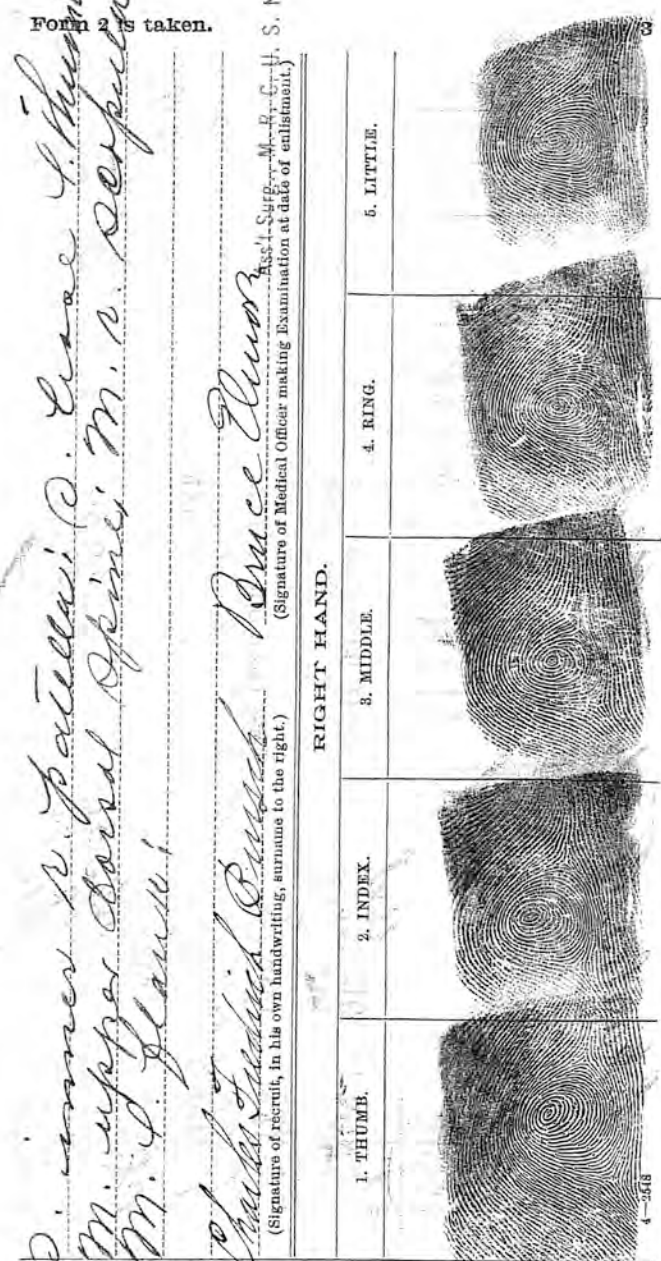 Form 2 is taken.
3
S. inner r. patella; S.
M. upper dorsal spine; M. r. scapula
M. l.
Charles Fredrick
(Signature of recruit, in his own handwriting, surname to the right.)
Bruce
Ass't Surg., M. R. C., U. S. N
(Signature of Medical Officer making Examination at date of enlistment.)
RIGHT HAND.
1. THUMB.
2. INDEX.
3. MIDDLE.
4. RING.
5. LITTLE.
4—2548